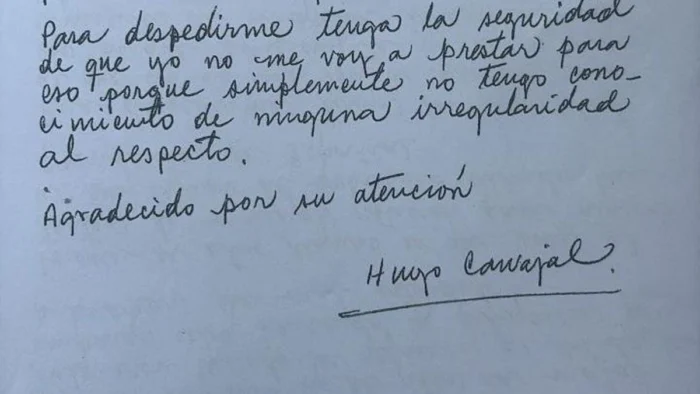 Para despedirme tenga la seguridad
de que yo no me voy a prestar para
eso porque simplemente no tengo cono-
cimiento de ninguna irregularidad
al respecto.
Agradecido por su atención
Hugo Carvajal.